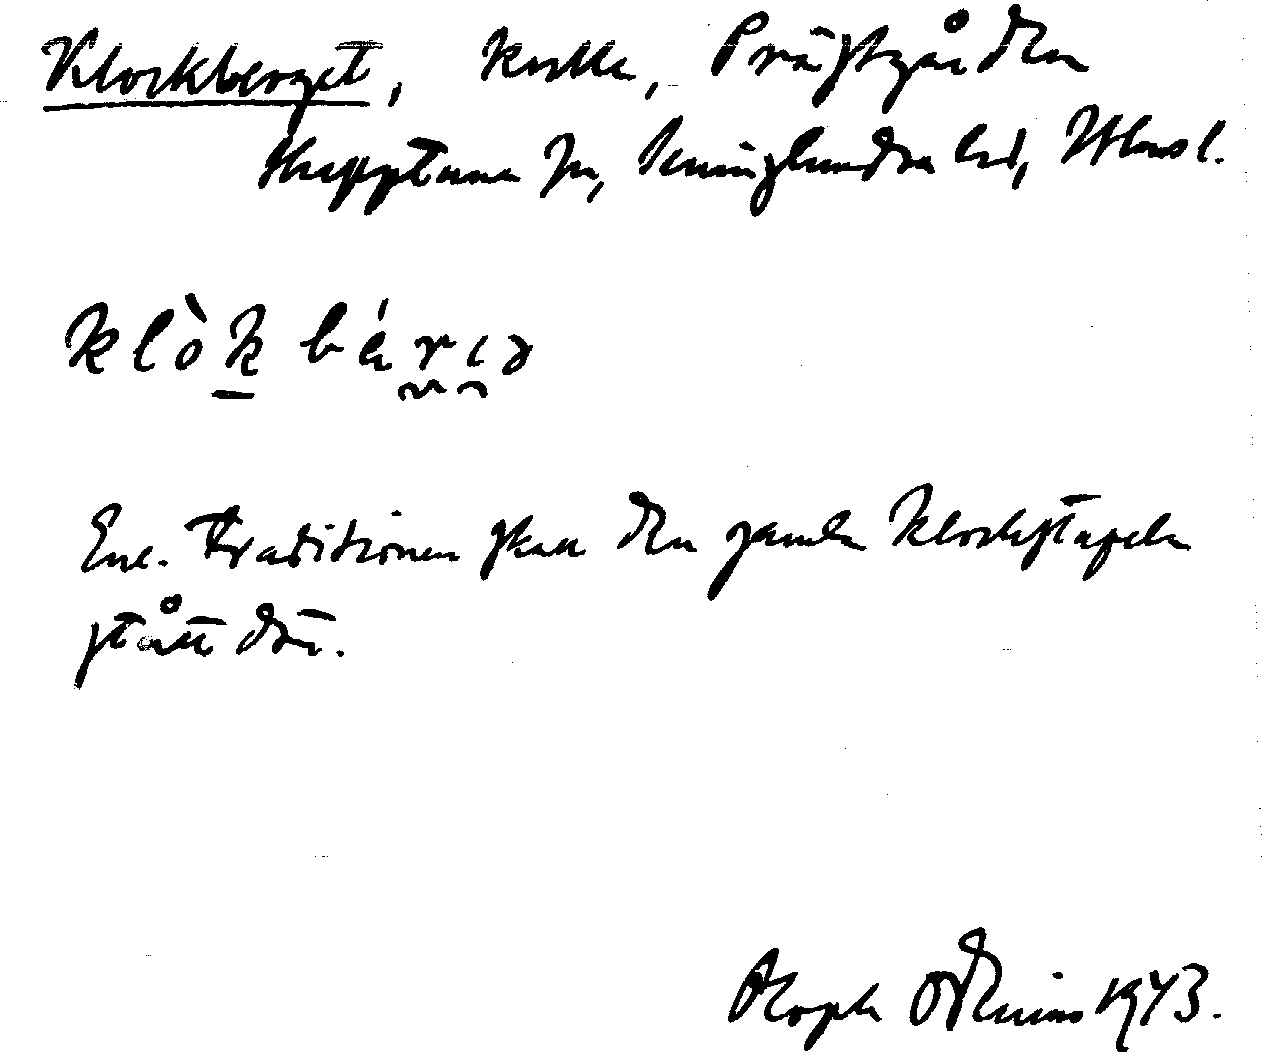 Klockberget, kulle, Prästgården
Huggstuna sn, Seminghundra hd, Uppl.
klòk bá r ı ə
Enl. traditionen skall den gamla klockstapeln
stått där.
Oloph Odenius 1943.